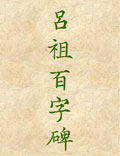 呂祖百字碑